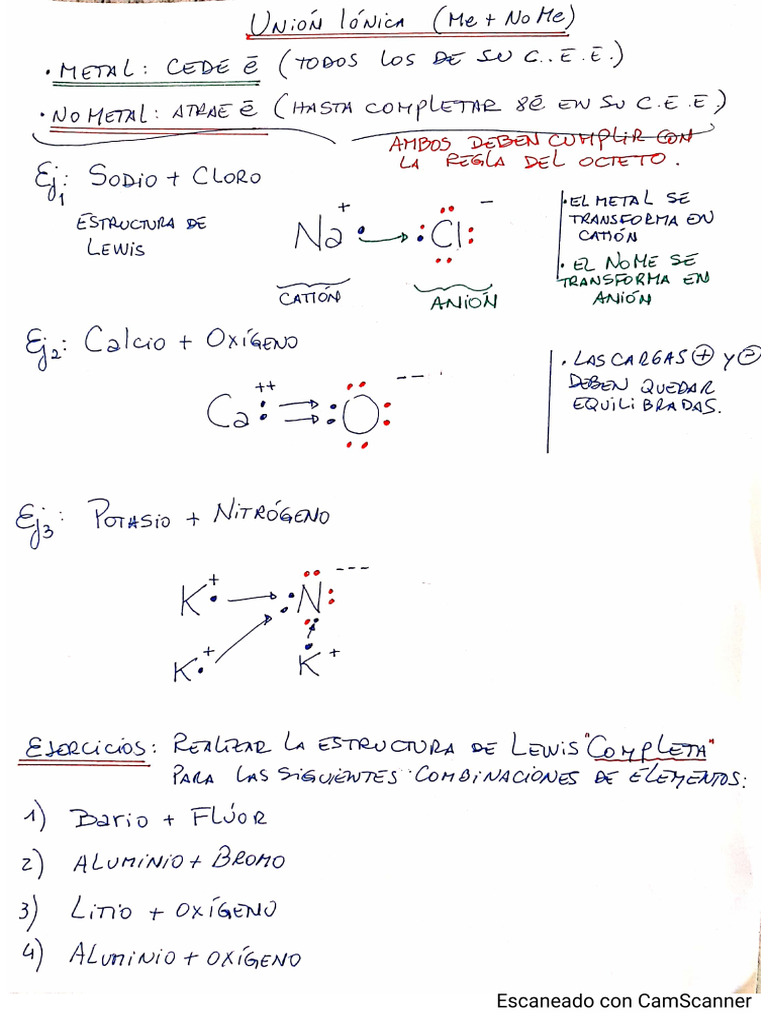 UNIÓN IÓNICA (Me + No Me)
• METAL: CEDE ē (TODOS LOS DE SU C.E.E.)
• NO METAL: ATRAE ē (HASTA COMPLETAR 8ē EN SU C.E.E.)
AMBOS DEBEN CUMPLIR CON
LA REGLA DEL OCTETO.
Ej1: SODIO + CLORO
ESTRUCTURA DE
LEWIS
Na + Cl −
CATIÓN ANIÓN
• EL METAL SE
TRANSFORMA EN
CATIÓN
• EL NO ME SE
TRANSFORMA EN
ANIÓN
Ej2: Calcio + OXÍGENO
Ca ++ O --
• LAS CARGAS + Y −
DEBEN QUEDAR
EQUILIBRADAS.
Ej3: POTASIO + NITRÓGENO
K + N ---
K + K +
EJERCICIOS: REALIZAR LA ESTRUCTURA DE LEWIS "COMPLETA"
PARA LAS SIGUIENTES COMBINACIONES DE ELEMENTOS:
1) Bario + FLÚOR
2) ALUMINIO + BROMO
3) LITIO + OXÍGENO
4) ALUMINIO + OXÍGENO
Escaneado con CamScanner